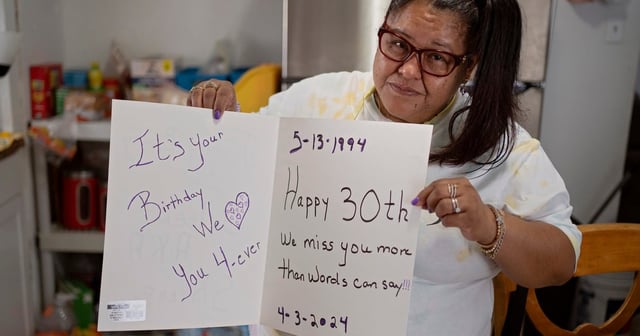 It's your
Birthday
We ♡
You 4-ever
5-13-1994
Happy 30th
We miss you more
than words can say!!!
4-3-2024